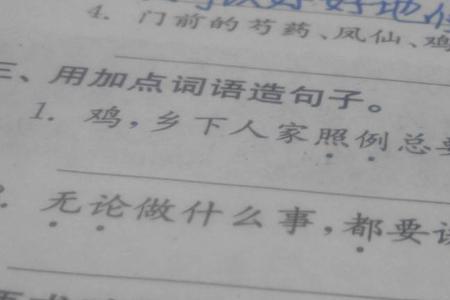 好好地
4. 门前的芍药、凤仙、鸡
三、用加点词语造句子。
1. 鸡，乡下人家照例总
无论做什么事，都要